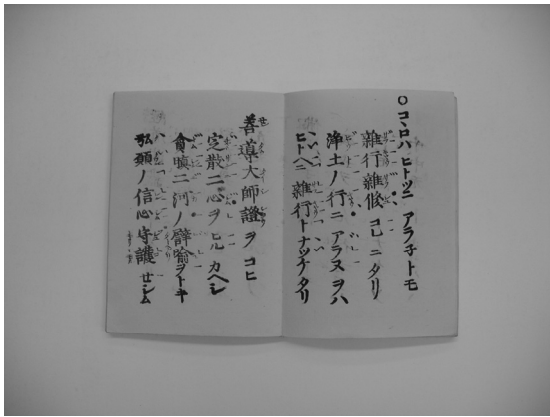 ○コヽロハヒトツニアラ子トモ
雜行雜修コレニタリ
淨土ノ行ニアラヌヲハ
ヒトヘニ雜行トナツケタリ
善導大師證ヲコヒ
定散二心ヲヒルカヘシ
貪瞋二河ノ譬喩ヲトキ
弘願ノ信心守護セシム